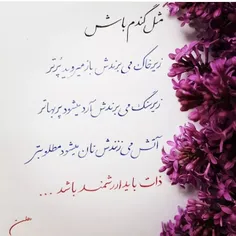 مثل گندم باش
زیر خاک می برندش باز میروید پُرتر
زیر سنگ می برندش آرد میشود پر بهاتر
آتش می زنندش نان میشود مطلوبتر
ذات باید ارزشمند باشد ...